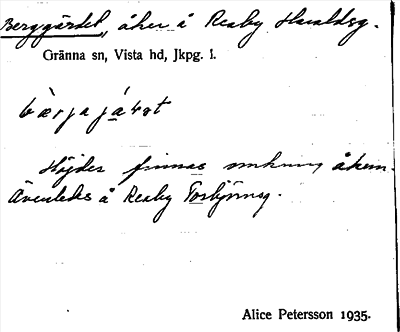 Berggärdet, åker å Reaby Haraldsg.
Gränna sn, Vista hd, Jkpg. l.
bærjajáɫət
Höjder finnas omkring åkern.
Ävenledes å Reaby Torbjörnsg.
Alice Petersson 1935.